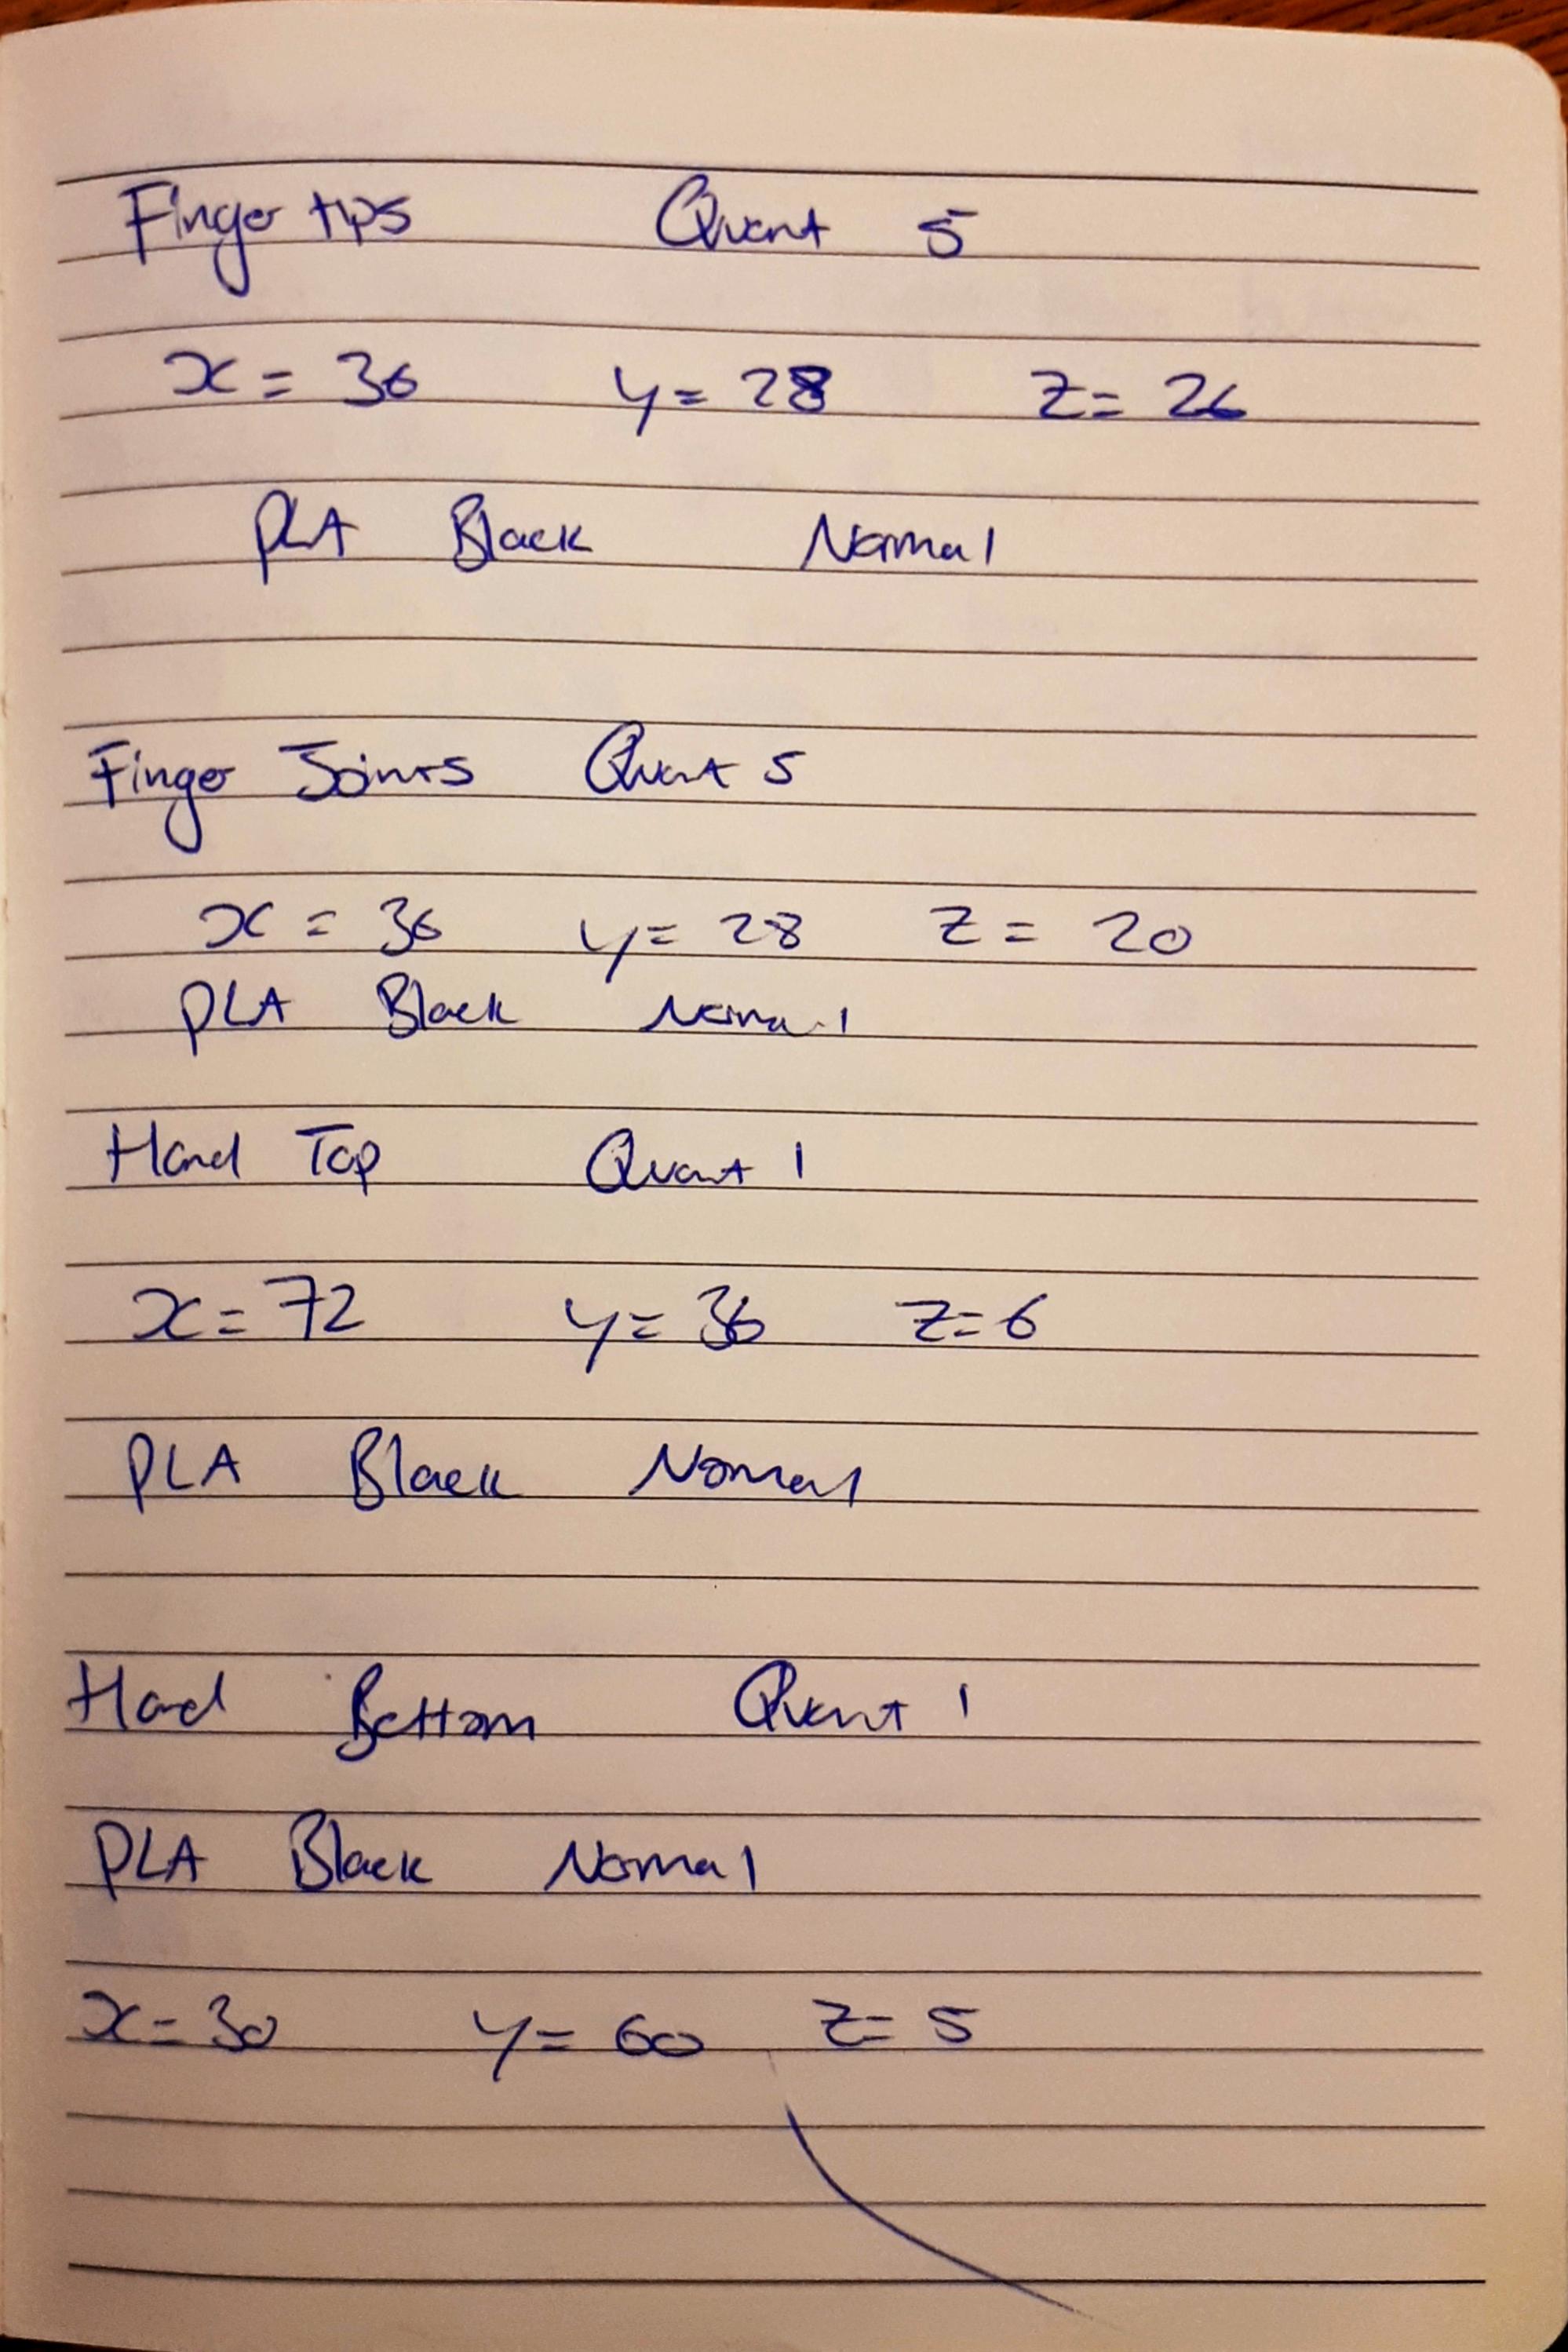 Finger tips Quant 5
x = 36 y = 28 z = 26
PLA Black Normal
Finger Joints Quant 5
x = 36 y = 28 z = 20
PLA Black Normal
Hand Top Quant 1
x = 72 y = 36 z = 6
PLA Black Normal
Hand Bottom Quant 1
PLA Black Normal
x = 30 y = 60 z = 5